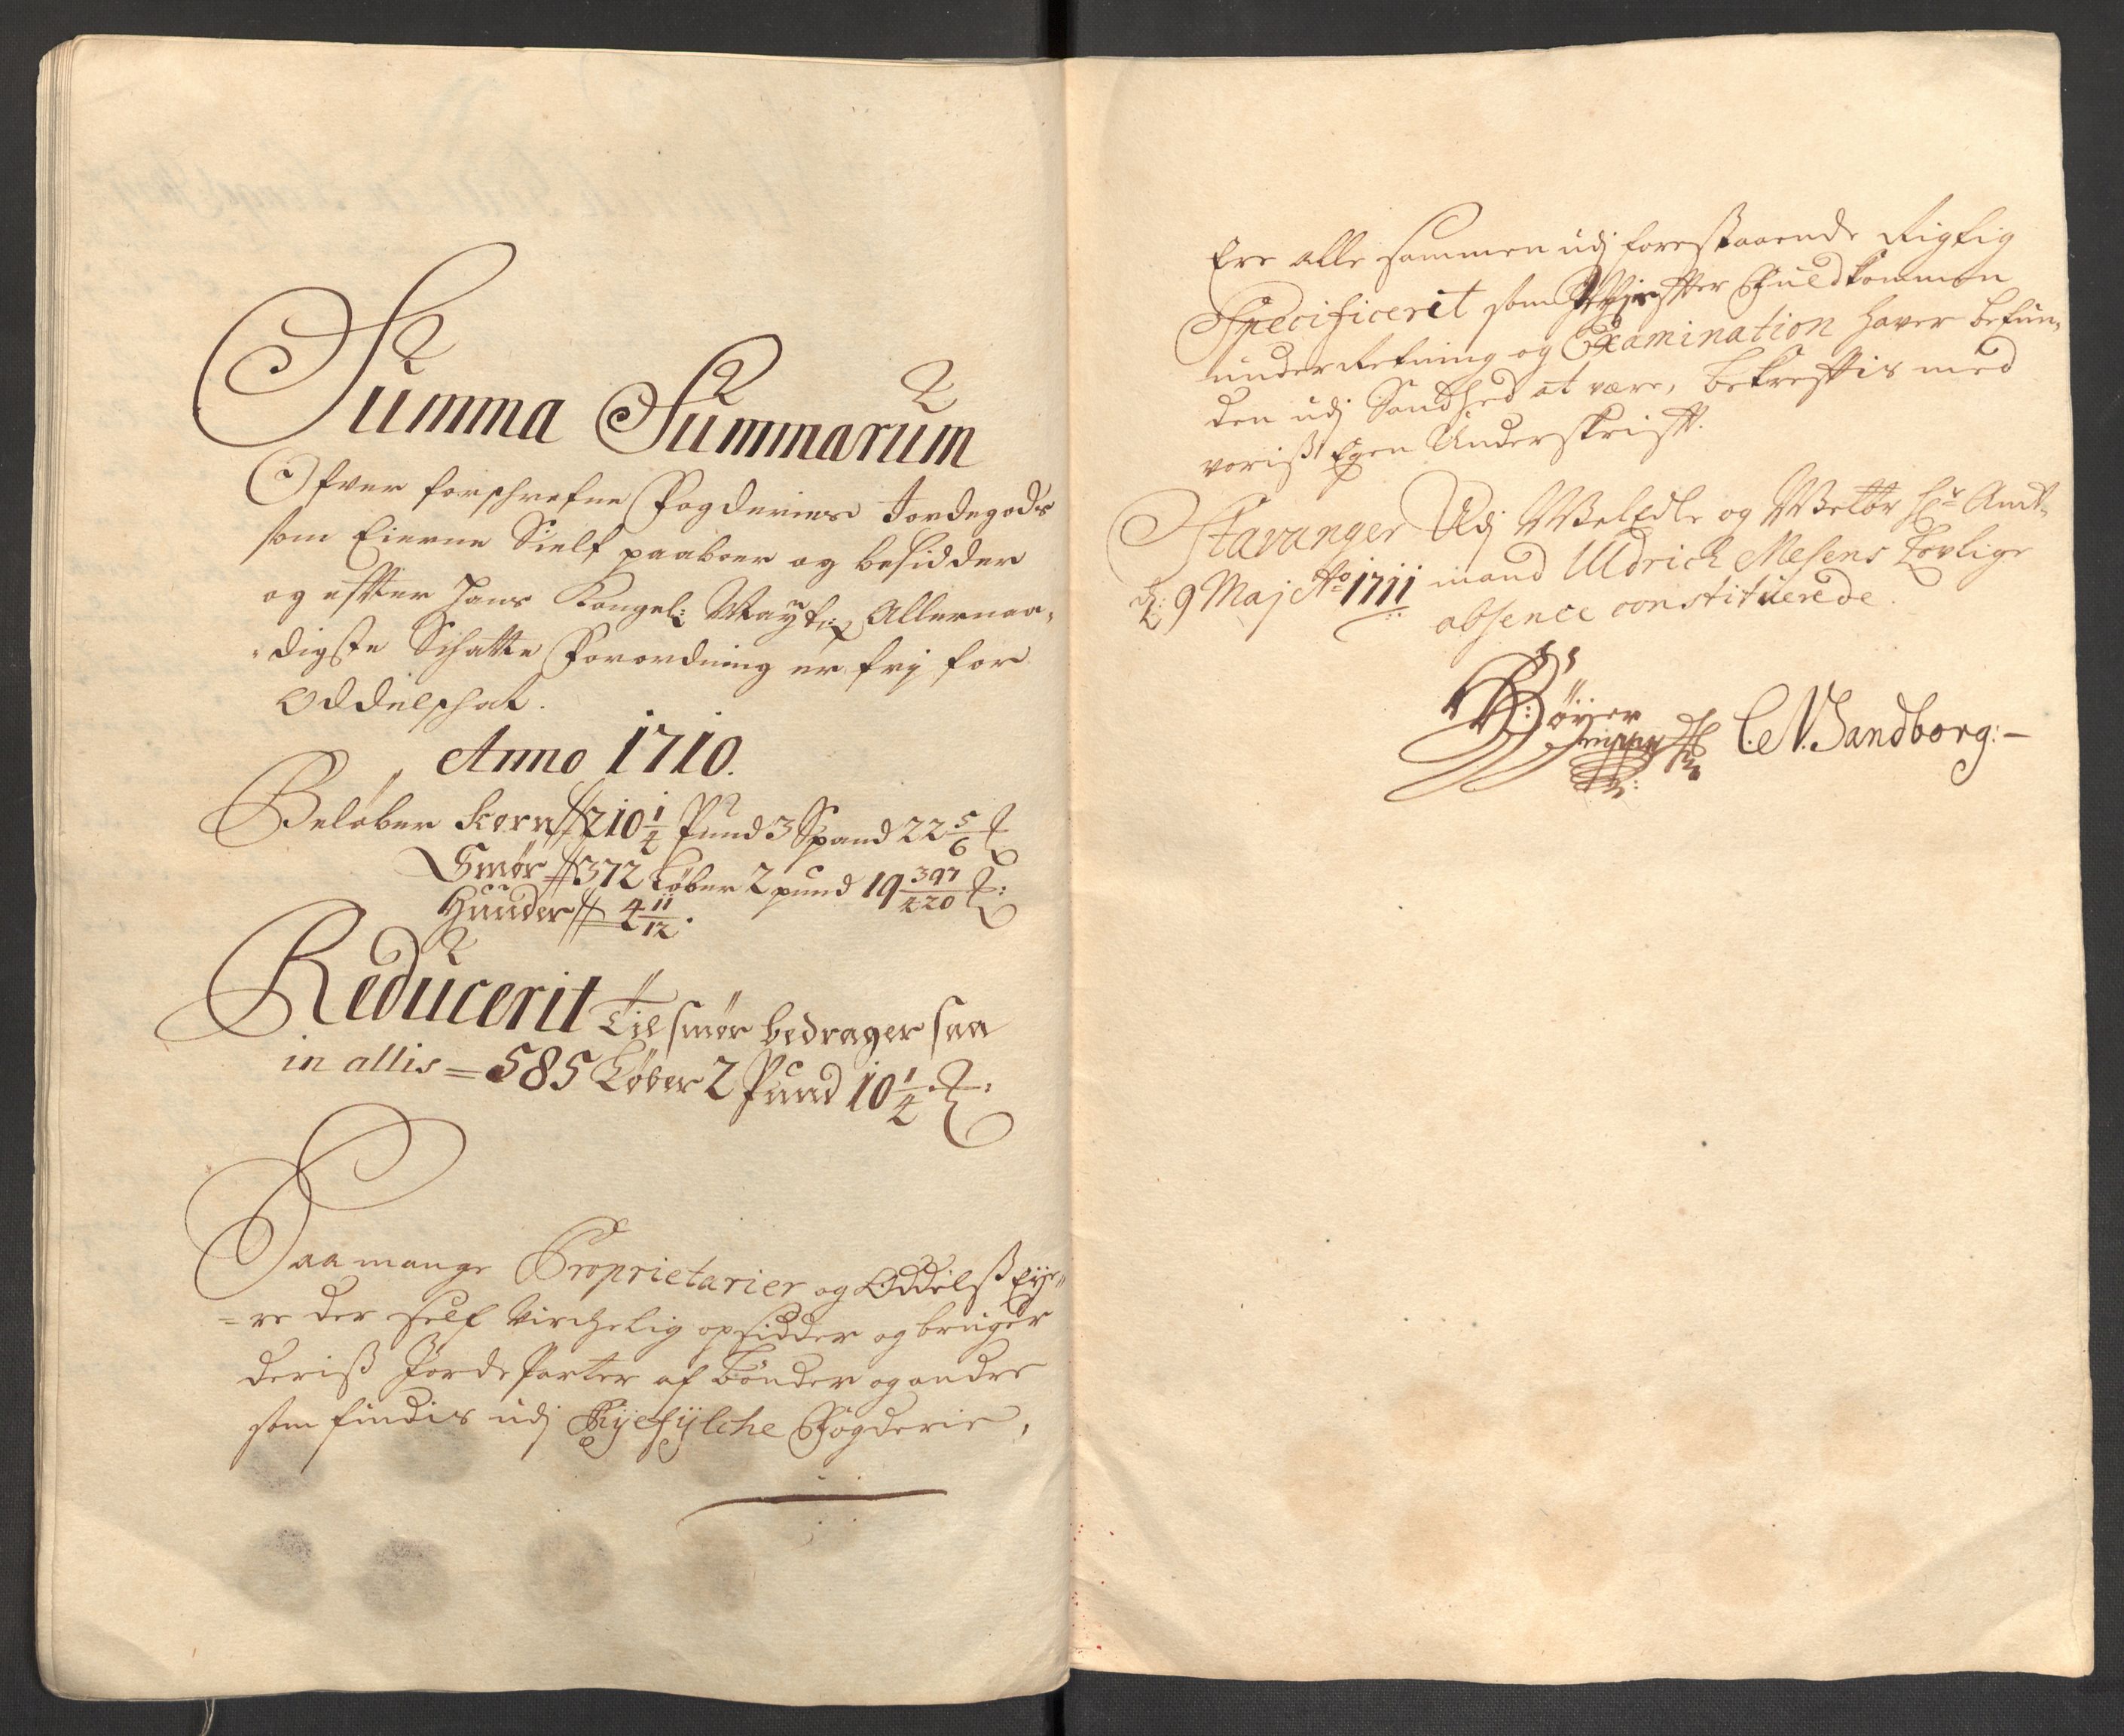 Summa Summarum
Ofver forschrefne Fogderies Jordegods
som Eierne Sielf paaboer og besidder
og efter Hans Kongel: Mayts: Allernaa-
digste Schatte Forordning er frj for
Oddelschat.
Anno 1710.
Beløber korn 210 1/4 Pund 3 Spand 22 5/6 ℔
Smør 372 Løber 2 pund 19 397/420 ℔:
Huuder 4 11/12.
Reducerit til smør bedrager saa
in allis = 585 Løber 2 Pund 10 1/4 ℔:
Saa mange Proprietarier og Oddelß Eije-
re der self virchelig opsidder og bruger
deriß Jorde Parter af bønder og andre
som findis udj Ryefylche Fogderie,
Ere alle sammen udj forestaaende Rigtig
Specificerit som efter Fuldkommen
underretning og Examination haver befun-
den udj Sandhed at være, bekreftis med
voriß Egen Underskrift.
Stavanger Udj WelEdle og Welbr Hr Amt-
d: 9 Maj Ao 1711 mand Uldrich Mesens Lovlige
absence constituerede.
Bøyer
C. N. Sandborg:-